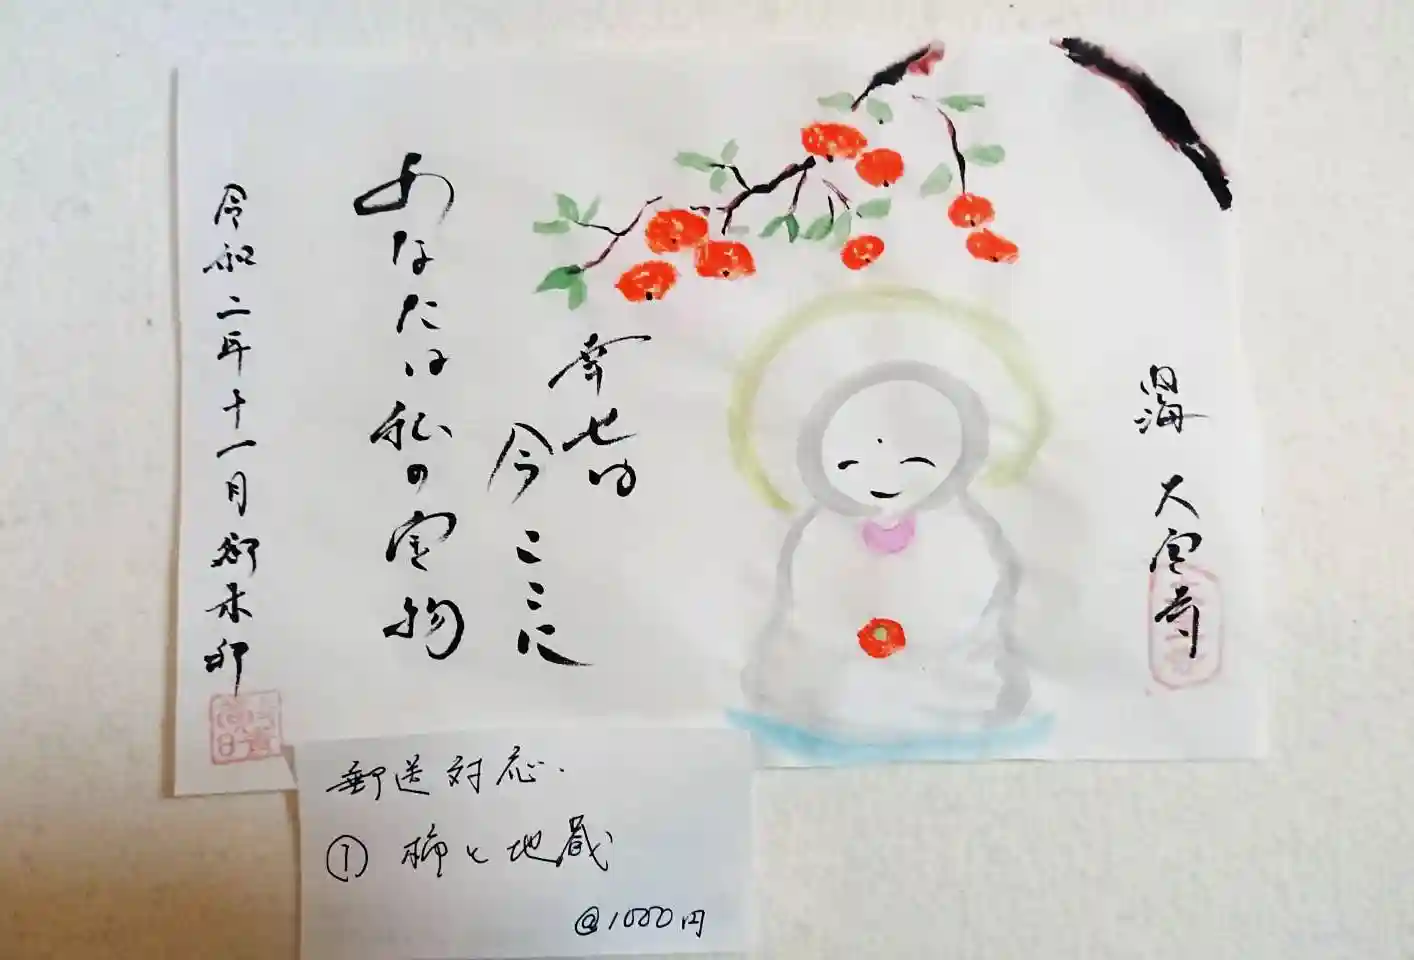 大宮寺
幸せは
今ここに
あなたは私の宝物
令和二年十一月御朱印
郵送対応.
① 柿と地蔵
@1000円